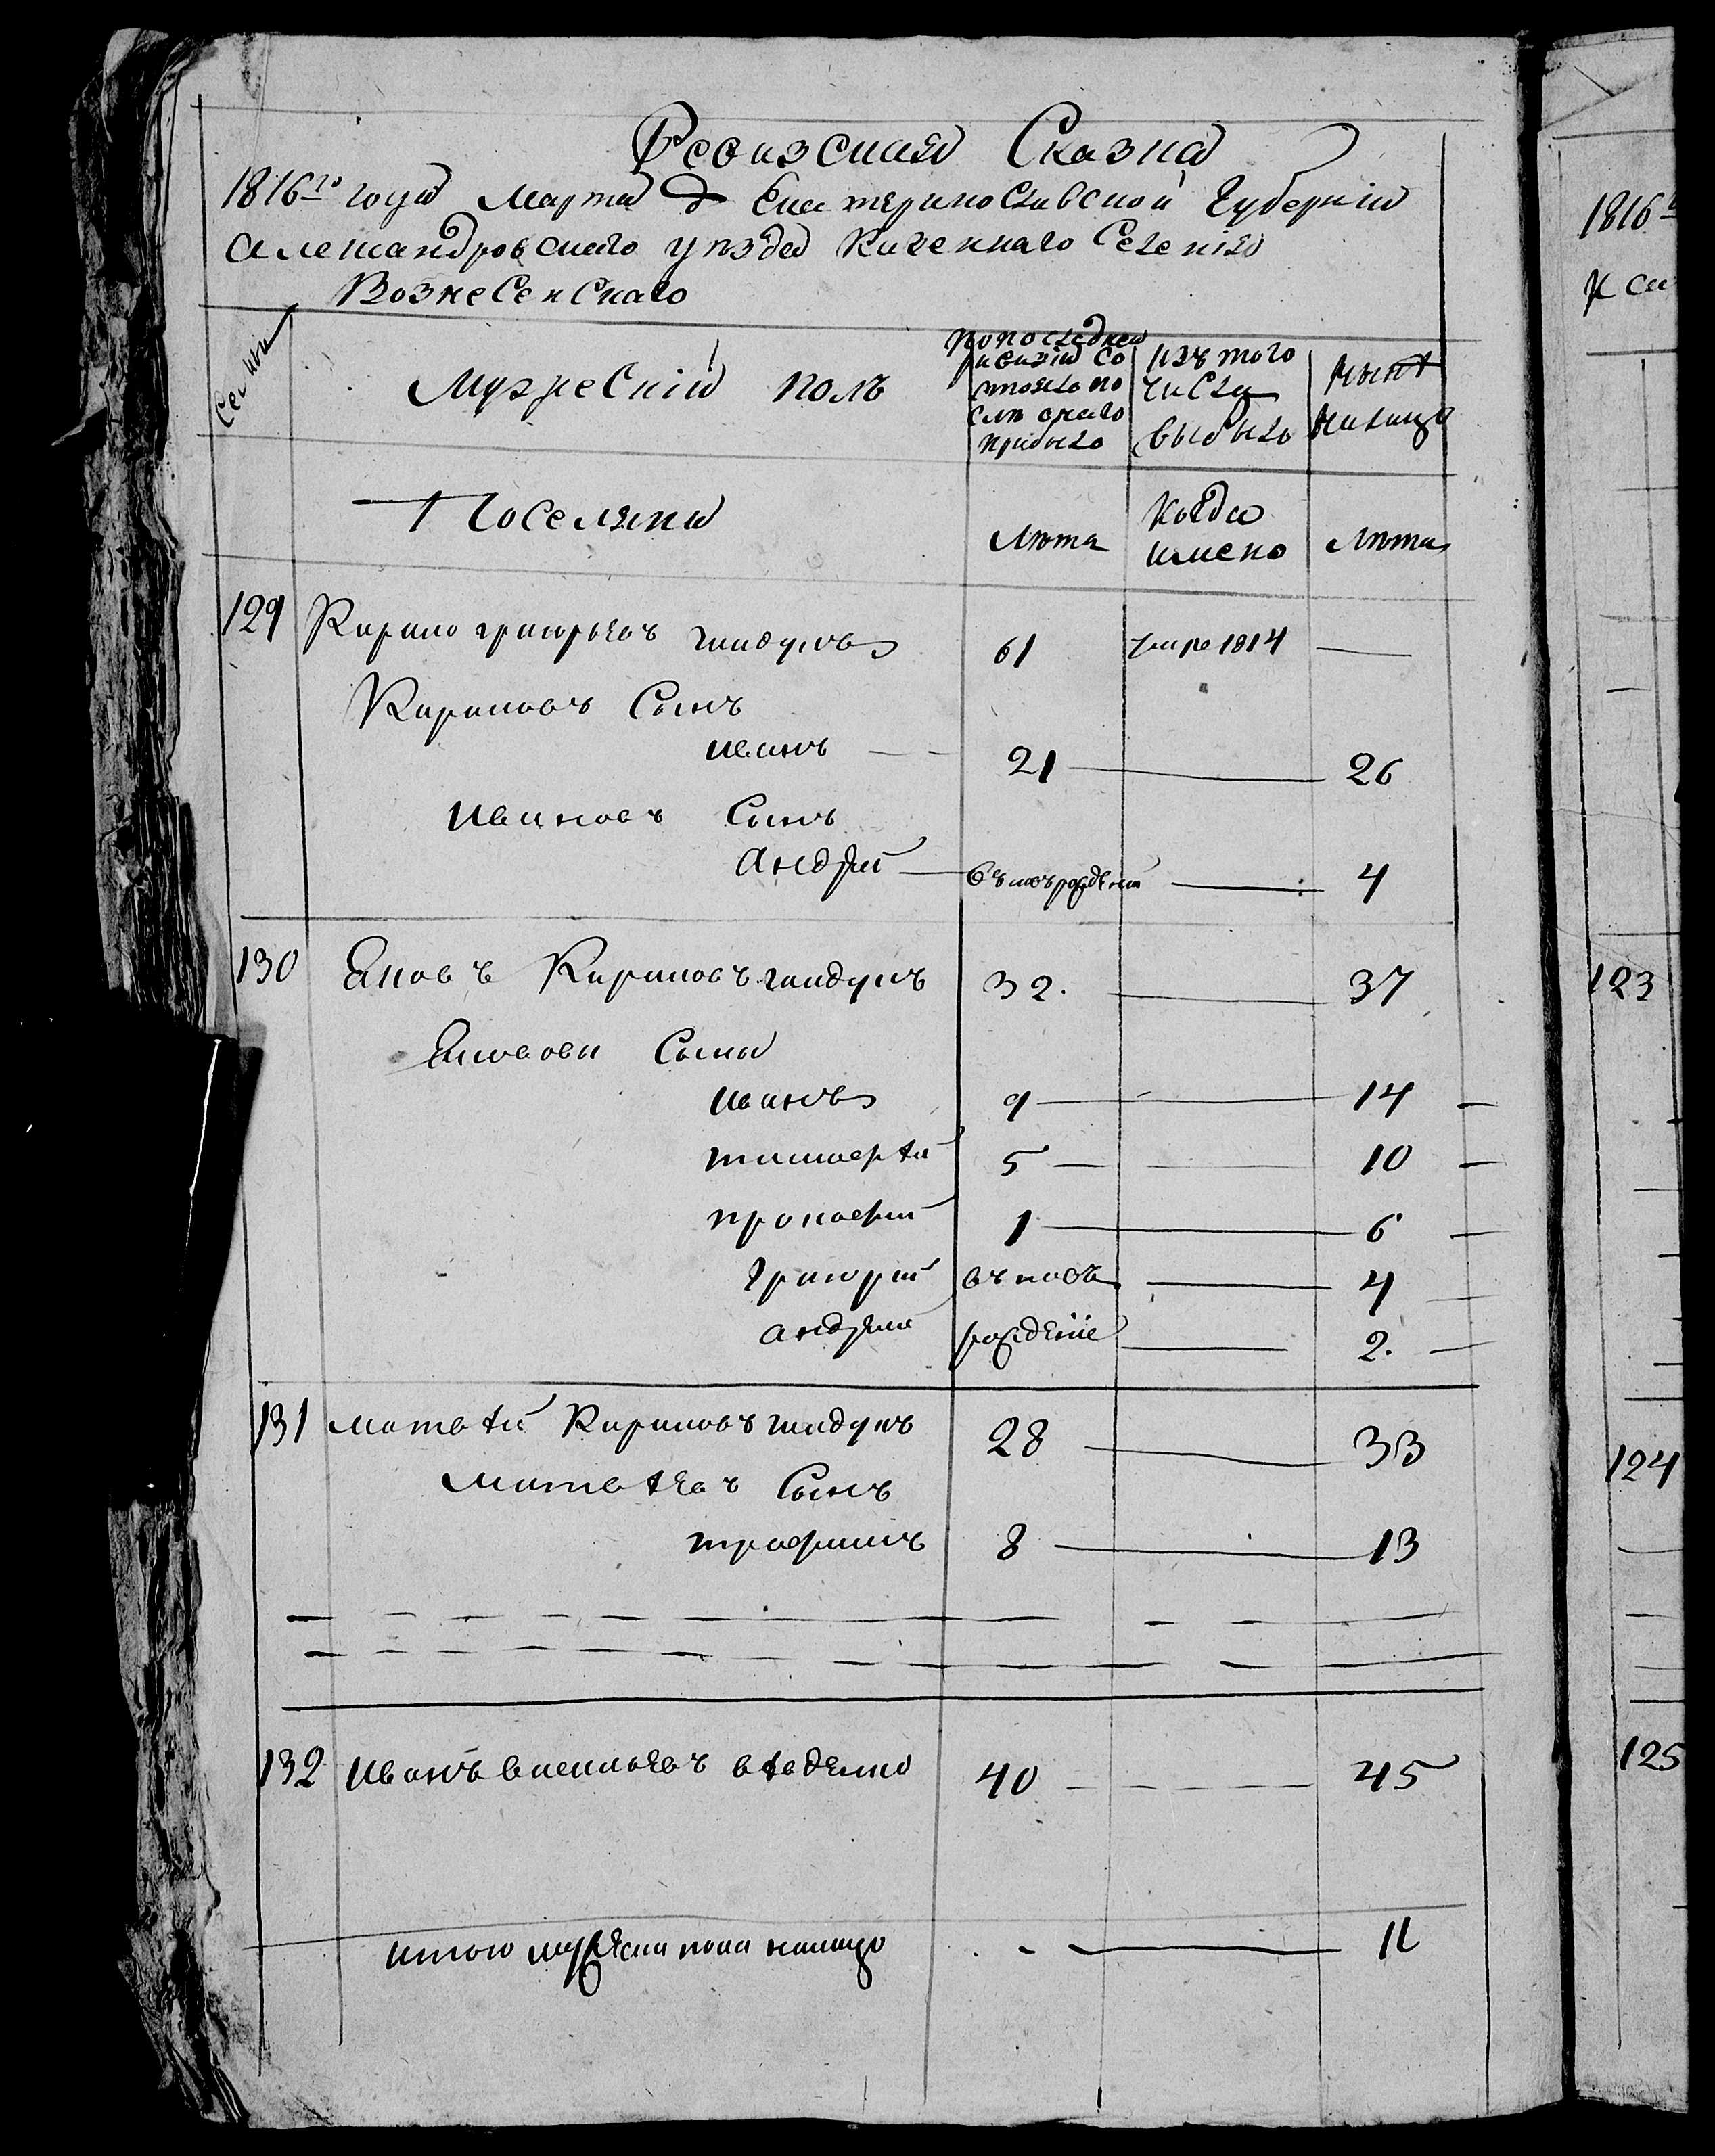 Ревизская Сказка
1816го года Марта Д Екатеринославской Губернiи
Александровскаго уѣзда Казеннаго Селенiя
Вознесенскаго
Семьи
Мужескiй полъ
по последней
ревизiи со
стояло по
слѣ онаго
прибыло
изъ того
числа
выбыло
нынѣ
налицо
Поселяны
Лѣта
Когда
имено
Лѣта
129 Кирило григорьевъ гайдукъ 61 умре 1814 —
Кириловъ Сынъ
иванъ — 21 — 26
Ивановъ Сынъ
Андрей — въновърожденй — 4
130 Яковъ Кириловъ гайдукъ 32. — 37
Яковови Сыны
иванъ 9 — 14 —
тимоѳѣй 5 — 10 —
прокофий 1 — 6 —
григорий въновь — 4 —
андрей рожденiе — 2. —
131 матвѣй Кириловъ гайдукъ 28 — 33
матвѣевъ Сынъ
трофимъ 8 — 13
132 иванъ васильевъ 40 — 45
итого мужеска пола налицо — 11
1816
К
123
124
125